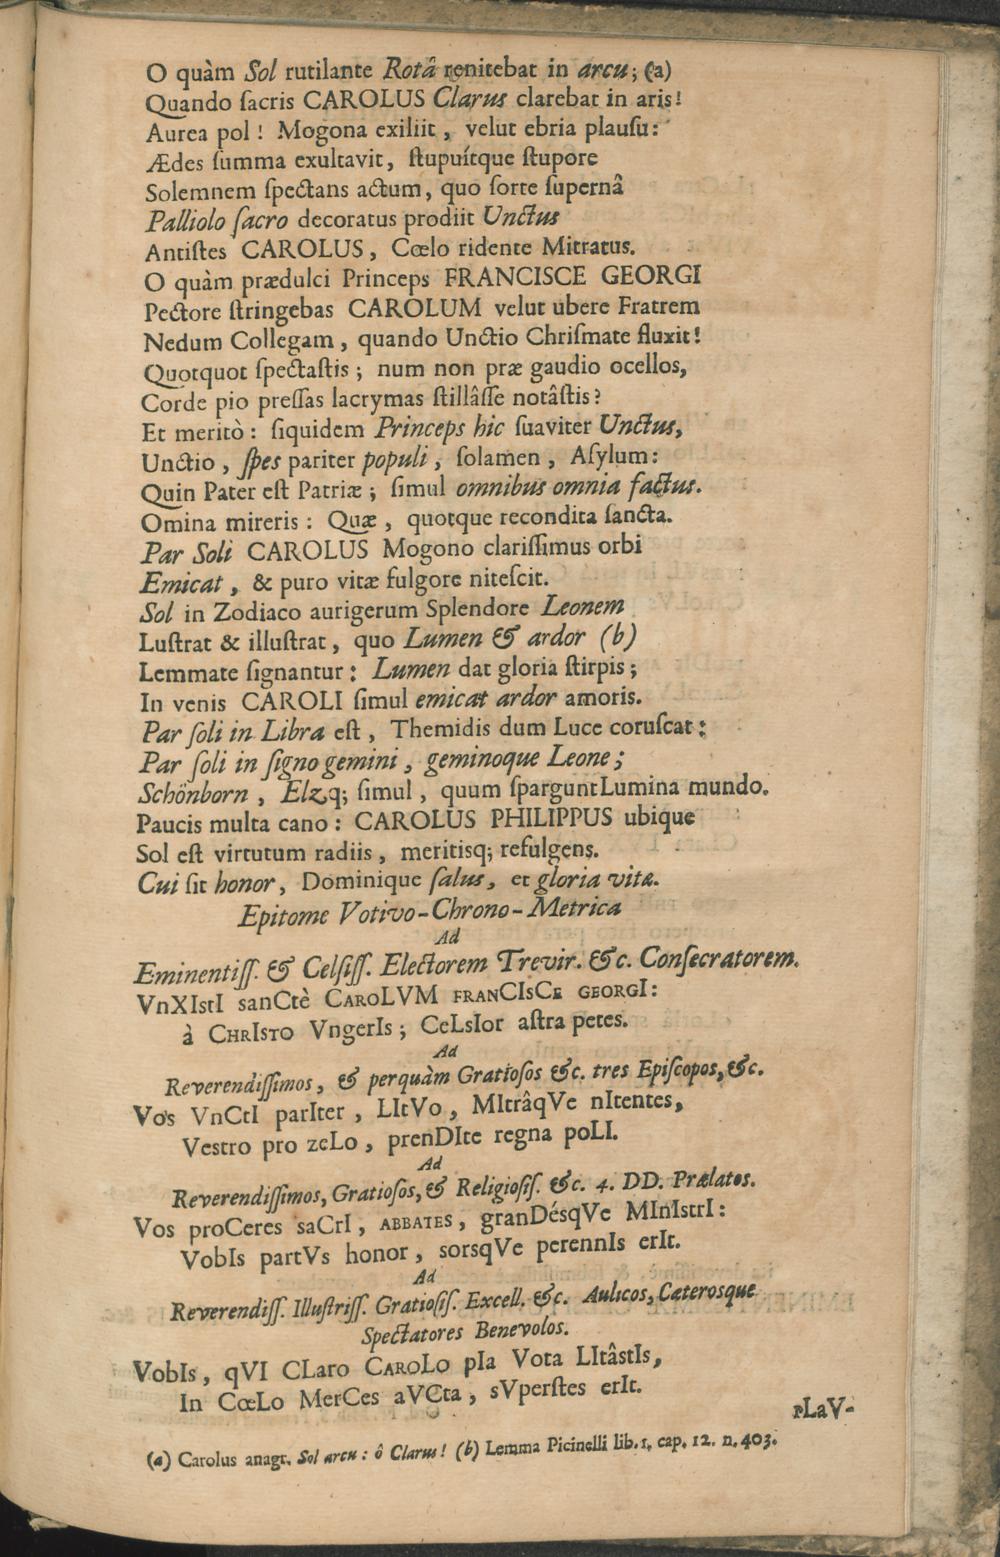 O quàm Sol rutilante Rotâ renitebat in arcu; (a)
Quando ſacris CAROLUS Clarus clarebat in aris!
Aurea pol! Mogona exiliit, velut ebria plauſu:
Ædes ſumma exultavit, ſtupuítque ſtupore
Solemnem ſpectans actum, quo ſorte ſupernâ
Palliolo ſacro decoratus prodiit Unctus
Antiſtes CAROLUS, Cœlo ridente Mitratus.
O quàm prædulci Princeps FRANCISCE GEORGI
Pectore ſtringebas CAROLUM velut ubere Fratrem
Nedum Collegam, quando Unctio Chriſmate fluxit!
Quotquot ſpectaſtis; num non præ gaudio ocellos,
Corde pio preſſas lacrymas ſtillâſſe notâſtis?
Et meritò: ſiquidem Princeps hic ſuaviter Unctus,
Unctio, ſpes pariter populi, ſolamen, Aſylum:
Quin Pater eſt Patriæ; ſimul omnibus omnia factus.
Omina mireris: Quæ, quotque recondita ſancta.
Par Soli CAROLUS Mogono clariſſimus orbi
Emicat, & puro vitæ fulgore niteſcit.
Sol in Zodiaco aurigerum Splendore Leonem
Luſtrat & illuſtrat, quo Lumen & ardor (b)
Lemmate ſignantur: Lumen dat gloria ſtirpis;
In venis CAROLI ſimul emicat ardor amoris.
Par ſoli in Libra eſt, Themidis dum Luce coruſcat:
Par ſoli in ſigno gemini, geminoque Leone;
Schönborn, Elzq; ſimul, quum ſpargunt Lumina mundo.
Paucis multa cano: CAROLUS PHILIPPUS ubique
Sol eſt virtutum radiis, meritisq; refulgens.
Cui ſit honor, Dominique ſalus, et gloria vitæ.
Epitome Votivo-Chrono-Metrica
Ad
Eminentiſſ. & Celſiſſ. Electorem Trevir. &c. Conſecratorem.
VnXIstI sanCtè CAROLVM FRANCIsCE GEORGI:
à CHRISTO VngerIs; CeLsIor aſtra petes.
Ad
Reverendiſſimos, & perquàm Gratioſos &c. tres Epiſcopos, &c.
Vos VnCtI parIter, LItVo, MItrâqVe nItentes,
Vestro pro zeLo, prenDIte regna poLI.
Ad
Reverendiſſimos, Gratioſos, & Religioſiſ. &c. 4. DD. Prælatos.
Vos proCeres saCrI, ABBATES, granDésqVe MInIstrI:
VobIs partVs honor, sorsqVe perennIs erIt.
Ad
Reverendiſſ. Illuſtriſſ. Gratioſiſ. Excell. &c. Aulicos, Cæterosque
Spectatores Benevolos.
VobIs, qVI CLaro CAROLO pIa Vota LItâstIs,
In CœLo MerCes aVCta, sVperstes erIt.
PLaV-
(a) Carolus anagr. Sol arcu: ô Clarus! (b) Lemma Picinelli lib. 1. cap. 12. n. 403.